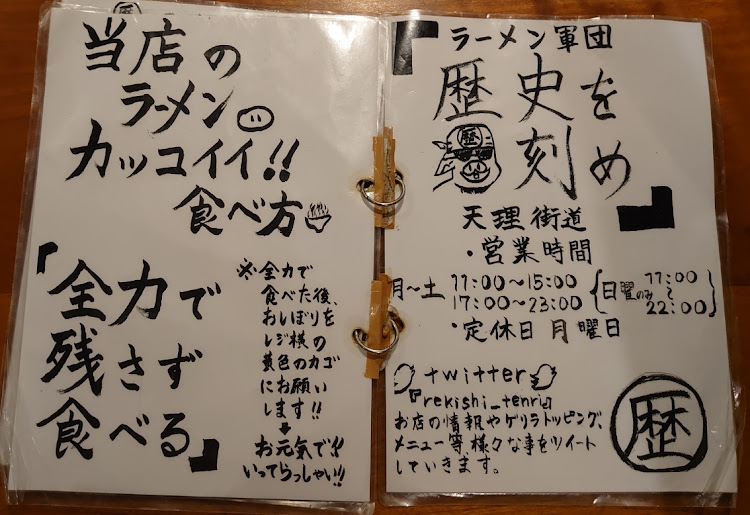 当店の
ラーメン
カッコイイ!!
食べ方
『全力で
残さず
食べる』
※全力で
食べた後、
おしぼりを
レジ横の
黄色のカゴ
にお願い
します!!
お元気で!!
いってらっしゃい!!
『ラーメン軍団
歴史を
歴
刻め』
天理街道
・営業時間
月〜土 11:00〜15:00
17:00〜23:00
{日曜のみ 11:00〜22:00}
・定休日 月曜日
twitter
『rekishi_tenri』
お店の情報やゲリラトッピング、
メニュー等様々な事をツイート
していきます。
歴